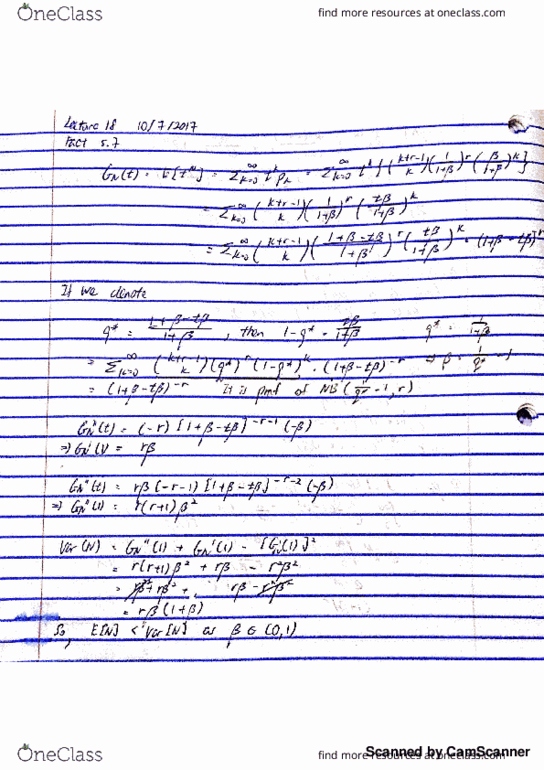 OneClass
find more resources at oneclass.com
Lecture 18 10/7/2017
Fact 5.7
G_N(t) = E[t^N] = Σ_{k=0}^∞ t^k p_k = Σ_{k=0}^∞ t^k {(k+r-1 k)(1/(1+β))^r (β/(1+β))^k}
= Σ_{k=0}^∞ (k+r-1 k)(1/(1+β))^r (tβ/(1+β))^k
= Σ_{k=0}^∞ (k+r-1 k)((1+β-tβ)/(1+β))^r (tβ/(1+β))^k · (1+β-tβ)^-r
If we denote
q* = (1+β-tβ)/(1+β), then 1-q* = tβ/(1+β) q* = 1/(1+β)
= Σ_{k=0}^∞ (k+r-1 k)(q*)^r (1-q*)^k · (1+β-tβ)^-r ⇒ β = 1/q* - 1
= (1+β-tβ)^-r it is pmf of NB(1/q* - 1, r)
G_N'(t) = (-r)[1+β-tβ]^-r-1 (-β)
⇒ G_N'(1) = rβ
G_N''(t) = rβ(-r-1)[1+β-tβ]^-r-2 (-β)
⇒ G_N''(1) = r(r+1)β²
Var(N) = G_N''(1) + G_N'(1) - [G_N'(1)]²
= r(r+1)β² + rβ - r²β²
= r²β² + rβ² + rβ - r²β²
= rβ(1+β)
So, E[N] < Var[N] as β ∈ (0,1)
OneClass
find more resources at oneclass.com
Scanned by CamScanner